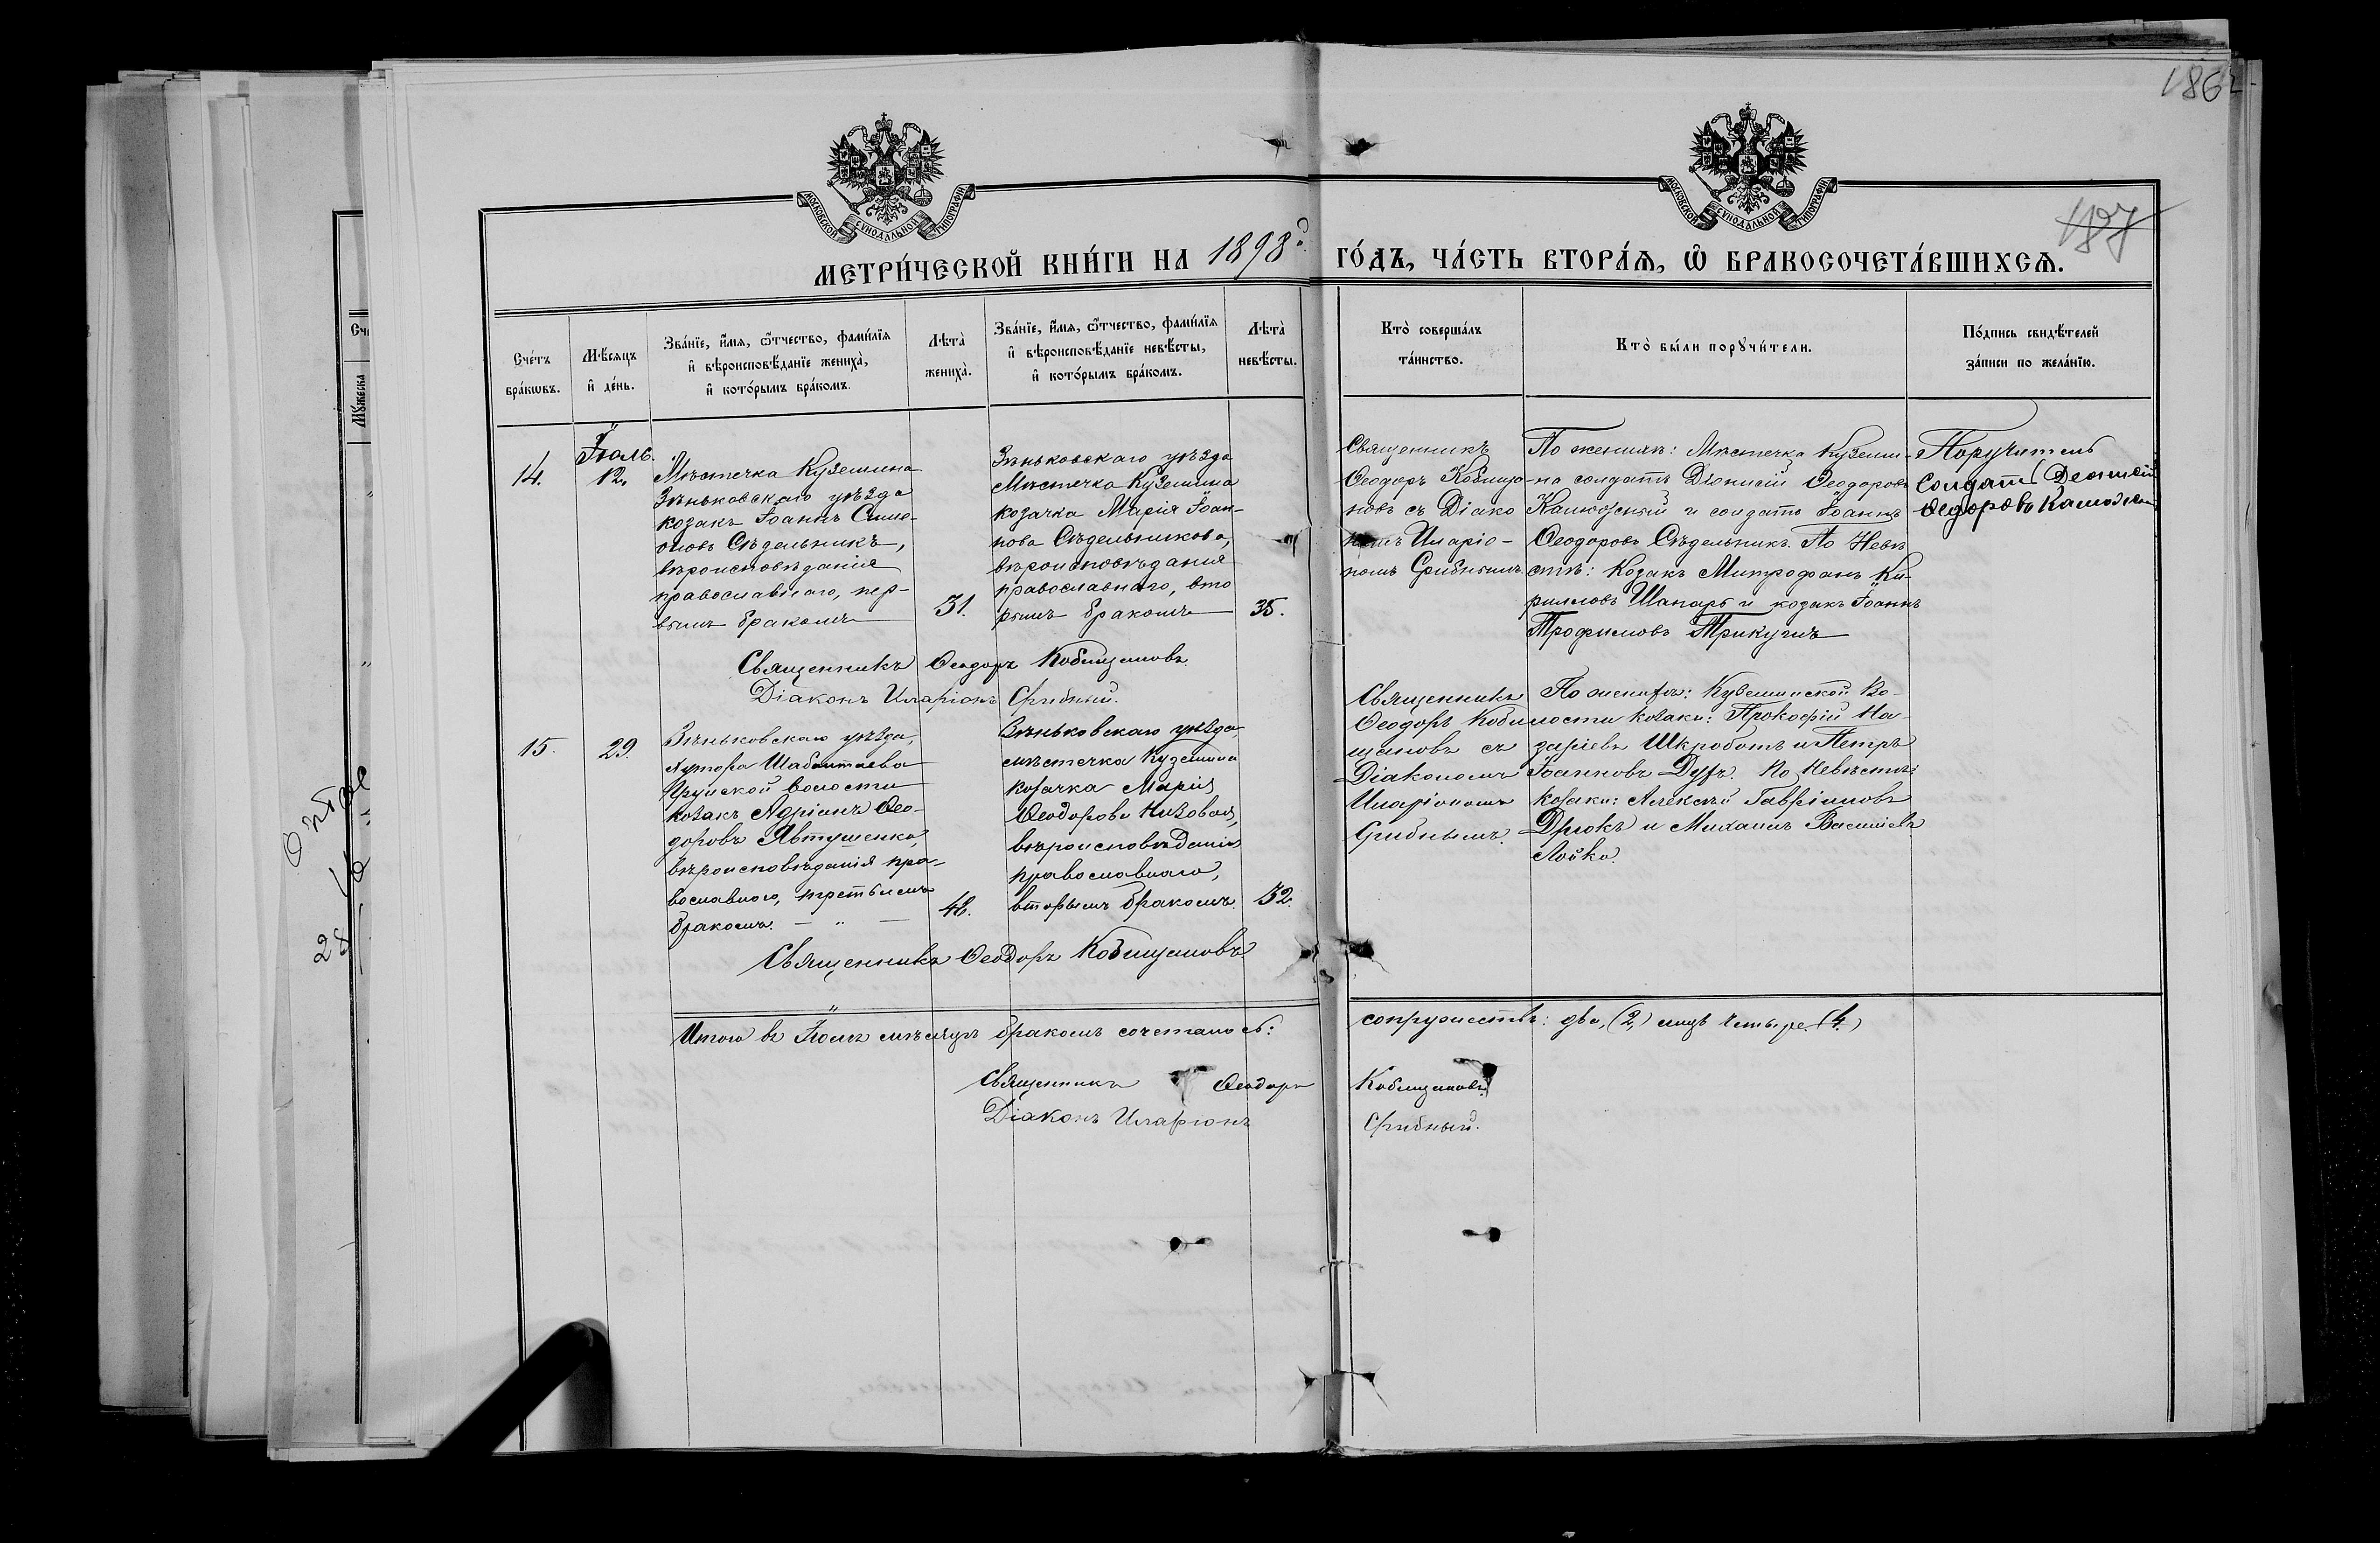 1862
187
МОСКОВСКОЙ СѴНОДАЛЬНОЙ ТИПОГРАФІИ
МОСКОВСКОЙ СѴНОДАЛЬНОЙ ТИПОГРАФІИ
МЕТРИ́ЧЕСКОЙ КНИ́ГИ НА 1898й ГО́ДЪ, ЧА́СТЬ ВТОРА́Ѧ, Ѽ БРАКОСОЧЕТА́ВШИХСѦ.
Сче́тъ бра́кωвъ.
Мѣ́сяцъ и҆ де́нь.
Зва́нїе, и҆́мѧ, ѻ҆́тчество, фами́лїѧ и҆ вѣроисповѣ́данїе жениха̀, и҆ кото́рымъ бра́комъ.
Лѣта̀ жениха̀.
Зва́нїе, и҆́мѧ, ѻ҆́тчество, фами́лїѧ и҆ вѣроисповѣ́данїе невѣ́сты, и҆ кото́рымъ бра́комъ.
Лѣта̀ невѣ́сты.
Кто̀ соверша́лъ та́инство.
Кто̀ бы́ли порꙋчи́тели.
По́дпись свидѣ́телей за́писи по жела́нїю.
14.
Іюль.
12.
Мѣстечка Куземина
Зѣньковскаго уѣзда
козакъ Іоаннъ Симе-
оновъ Сѣдельникъ,
вѣроисповѣданія
православнаго, пер-
вымъ бракомъ
31.
Зѣньковскаго уѣзда
Мѣстечка Куземина
козачка Марія Іоан-
нова Сѣдельникова,
вѣроисповѣданія
православнаго, вто
рымъ бракомъ
35.
Священникъ
Ѳеодоръ Кобища
новъ съ Діако
номъ Иларіо-
номъ Грибнымъ.
По женихѣ: Мѣстечка Куземи-
на солдатъ Діонисій Ѳеодоровъ
и солдатъ Іоаннъ
Ѳеодоровъ Сѣдельникъ. По Невѣ
стѣ: Козакъ Митрофанъ Ки-
рилловъ Шапарь и козакъ Іоаннъ
Трофимовъ Трикучъ
Поручитель
солдатъ Деонисій
Ѳедоровъ
Священникъ Ѳеодоръ Кобищановъ.
Діаконъ Иларіонъ Грибный.
15.
29.
Зѣньковскаго уѣзда,
хутора Шабантаева
Грунской волости
козакъ Адріанъ Ѳео-
доровъ Явтушенко,
вѣроисповѣданія пра-
вославнаго, третьимъ
бракомъ. — " —
46.
Зѣньковскаго уѣзда,
мѣстечка Куземина
козачка Марія
Ѳеодорова Низовая,
вѣроисповѣданія
православнаго,
вторымъ бракомъ.
32.
Священникъ
Ѳеодоръ Коби
щановъ съ
Діакономъ
Иларіономъ
Грибнымъ.
По женихѣ: Куземинской Во-
лости козаки: Прокофій На-
заріевъ Шкроботъ и Петръ
Іоанновъ По Невѣстѣ:
козаки: Алексѣй Гавріиловъ
Дрюкъ и Михаилъ Васильевъ
Лойко.
Священникъ Ѳеодоръ Кобищановъ
Итого въ Іюлѣ мѣсяцѣ бракомъ сочеталось: супружествъ: два, (2,) лицъ четыре. (4.)
Священникъ Ѳеодоръ Кобищановъ
Діаконъ Иларіонъ Грибный.